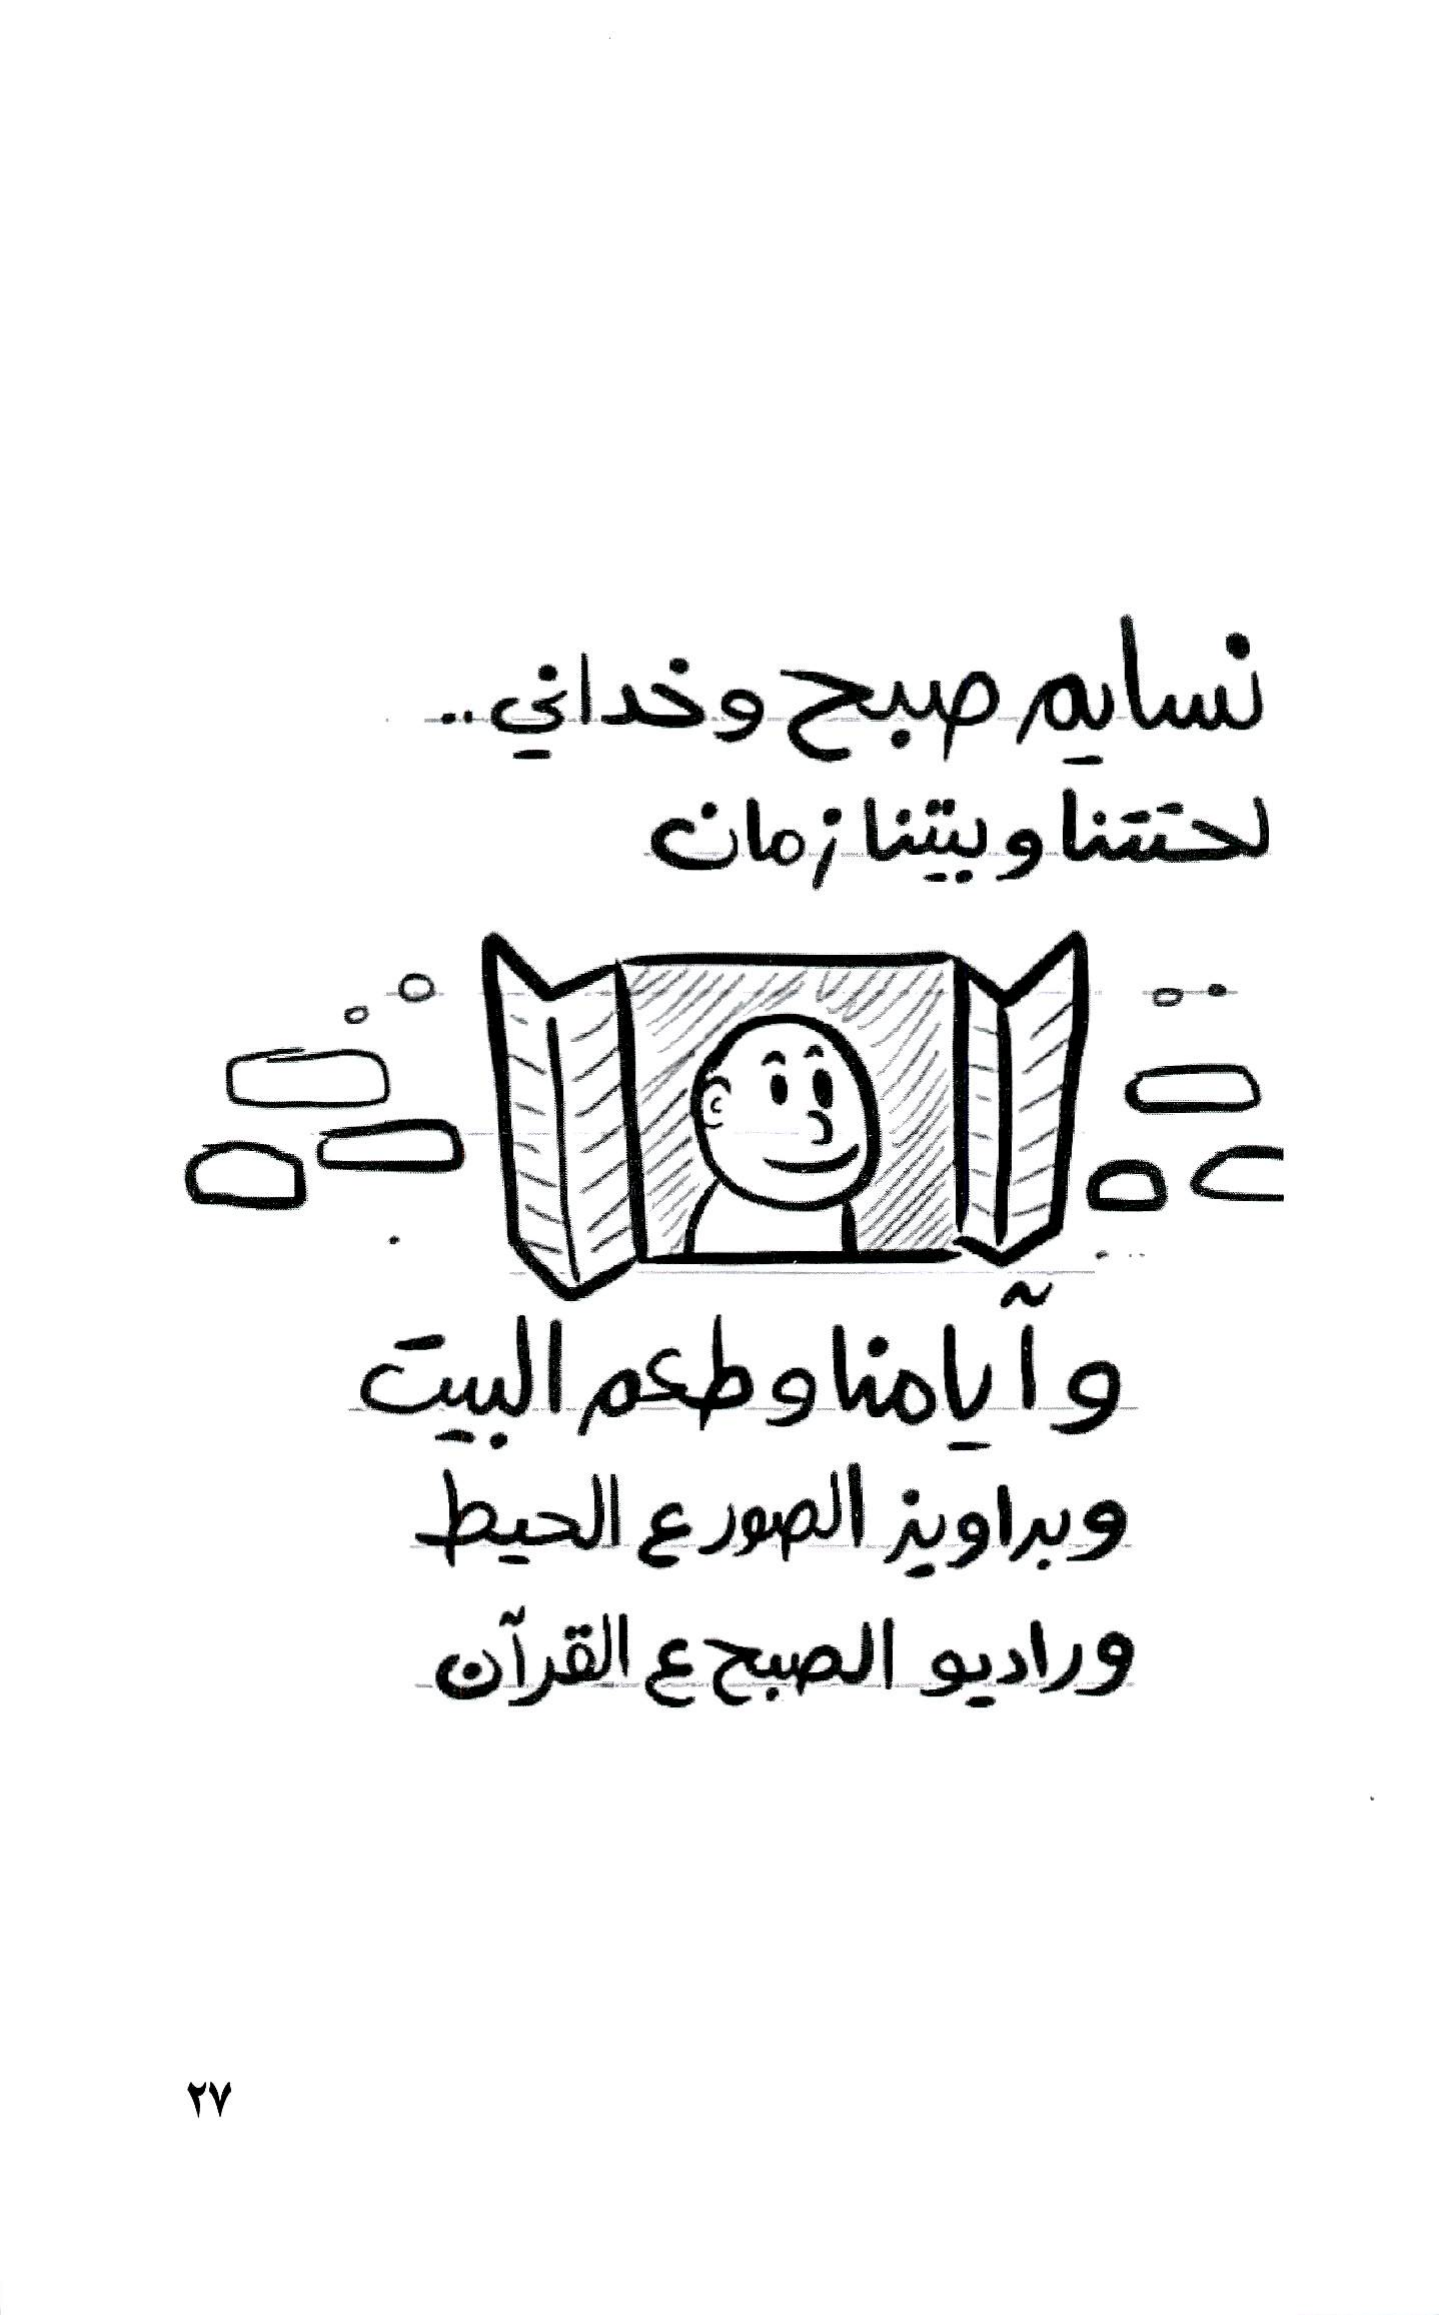 نسايم صبح وخداني..
لحتتنا وبيتنا زمان
وآيامنا وطعم البيت
وبراويز الصور ع الحيط
وراديو الصبح ع القرآن
٢٧